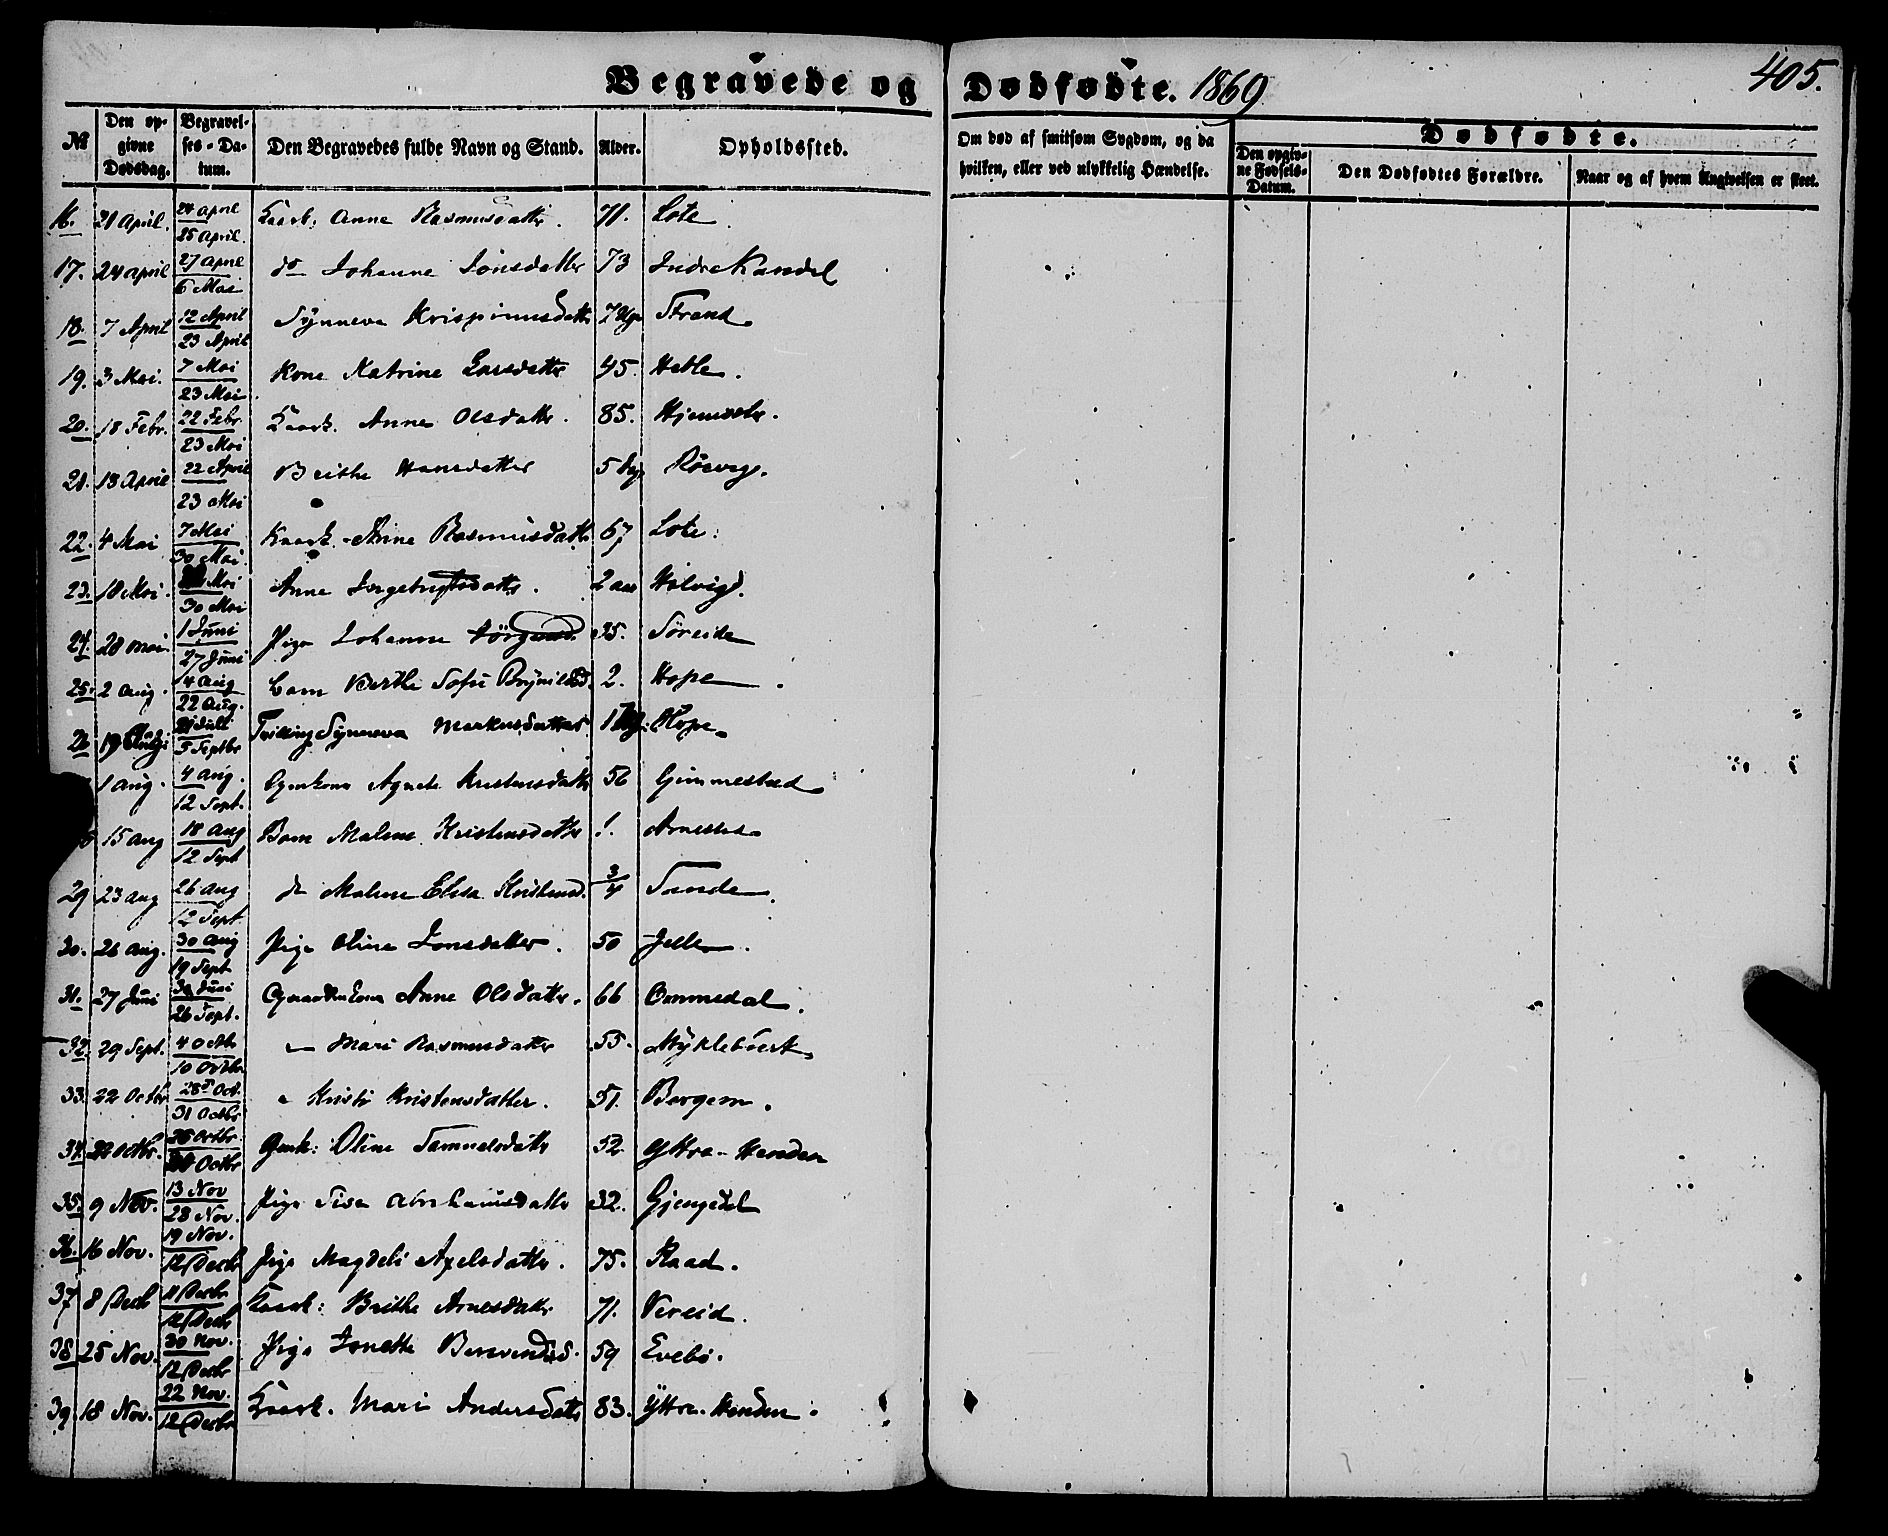 Begravede og Dødfødte. 1869 405.
No Den opgivne Dødsdag. Begravelses-Datum. Den Begravedes fulde Navn og Stand. Alder. Opholdssted. Om død af smitsom Sygdom, og da hvilken, eller ved ulykkelig Hændelse. Dødfødte. Den opgivne Fødsels-Datum. Den Dødfødtes Forældre. Naar og af hvem Angivelsen er skeet.
16. 21 April. 24 april 25 April. Kaark: Anne Rasmusdatter. 71. Lote
17. 24 april 27 April 6 Mai do Johanne Jonsdatter 73 Indre Handal
18. 7 April 12 April 23 April Synneva Krispinusdatter 7 Strand
19. 3 Mai. 7 Mai 23 Mai Kone Katrine Larsdatter 45. Hetle.
20. 18 Febr. 22 Febr 23 Mai Kaark. Anne Olsdatter. 85.
21. 18 April 22 April 23 Mai Brithe Hansdatter 5
22. 4 Mai 7 Mai 30 Mai Kaark. Anne Rasmusdatter 67 Lote.
23. 18 Mai. Mai 30 Mai Anne 2 aar
24. 28 mai. 1 Juni 27 Juni Pige Johanne 35. Søreide
25. 2 aug. 4 aug 22 Aug. Barn Berthe Sofie 2. Hope
26 19 5 Septbr Tvilling Synneva Markusdatter 1 Hope
1 aug. 4 aug. 12 Sept. Agnete Kristensdatter 56 Gimmestad
15 aug 18 aug 12 Sept Barn Malene Kristensdatter 1. Arnestad
29 23 aug 26 aug 12 Sept. do Malene Elisa Kristensd. 3/4 Sande.
30. 26 aug. 30 aug 19 Sept Pige Oline Jonsdatter. 50
31. 27 Juni 30 Juni 26 Sept. Anne Olsdatter. 66 Ommedal.
32. 29 Sept. 4 Octbr 10 Octbr Mari Rasmusdatter 55. Myklebust
33. 22 Octbr 28 Oct. 31 Octbr Kristi Kristensdatter. 51. Bergem.
34. Octbr. Octbr. Octbr Oline Samuelsdatter 52 Yttre-Henden
35. 9 Nov. 13 Nov 28 Nov. Pige Sise Abrahamsdatter 32. Gjengedal
36. 16 Nov. 19 Nov. 12 Decbr Pige Magdeli Axelsdatter. 75. Raad.
37 8 Decb 11 Decbr 12 Decbr Kaark: Brithe Arnesdatter 71. Vereid.
38 25 Nov. 30 Nov. 12 Decbr Pige Jonette 59 Evebø.
39. 18 Nov. 22 Nov. 12 Decbr Kaark. Mari Andersdatter 83. Yttre. Henden.